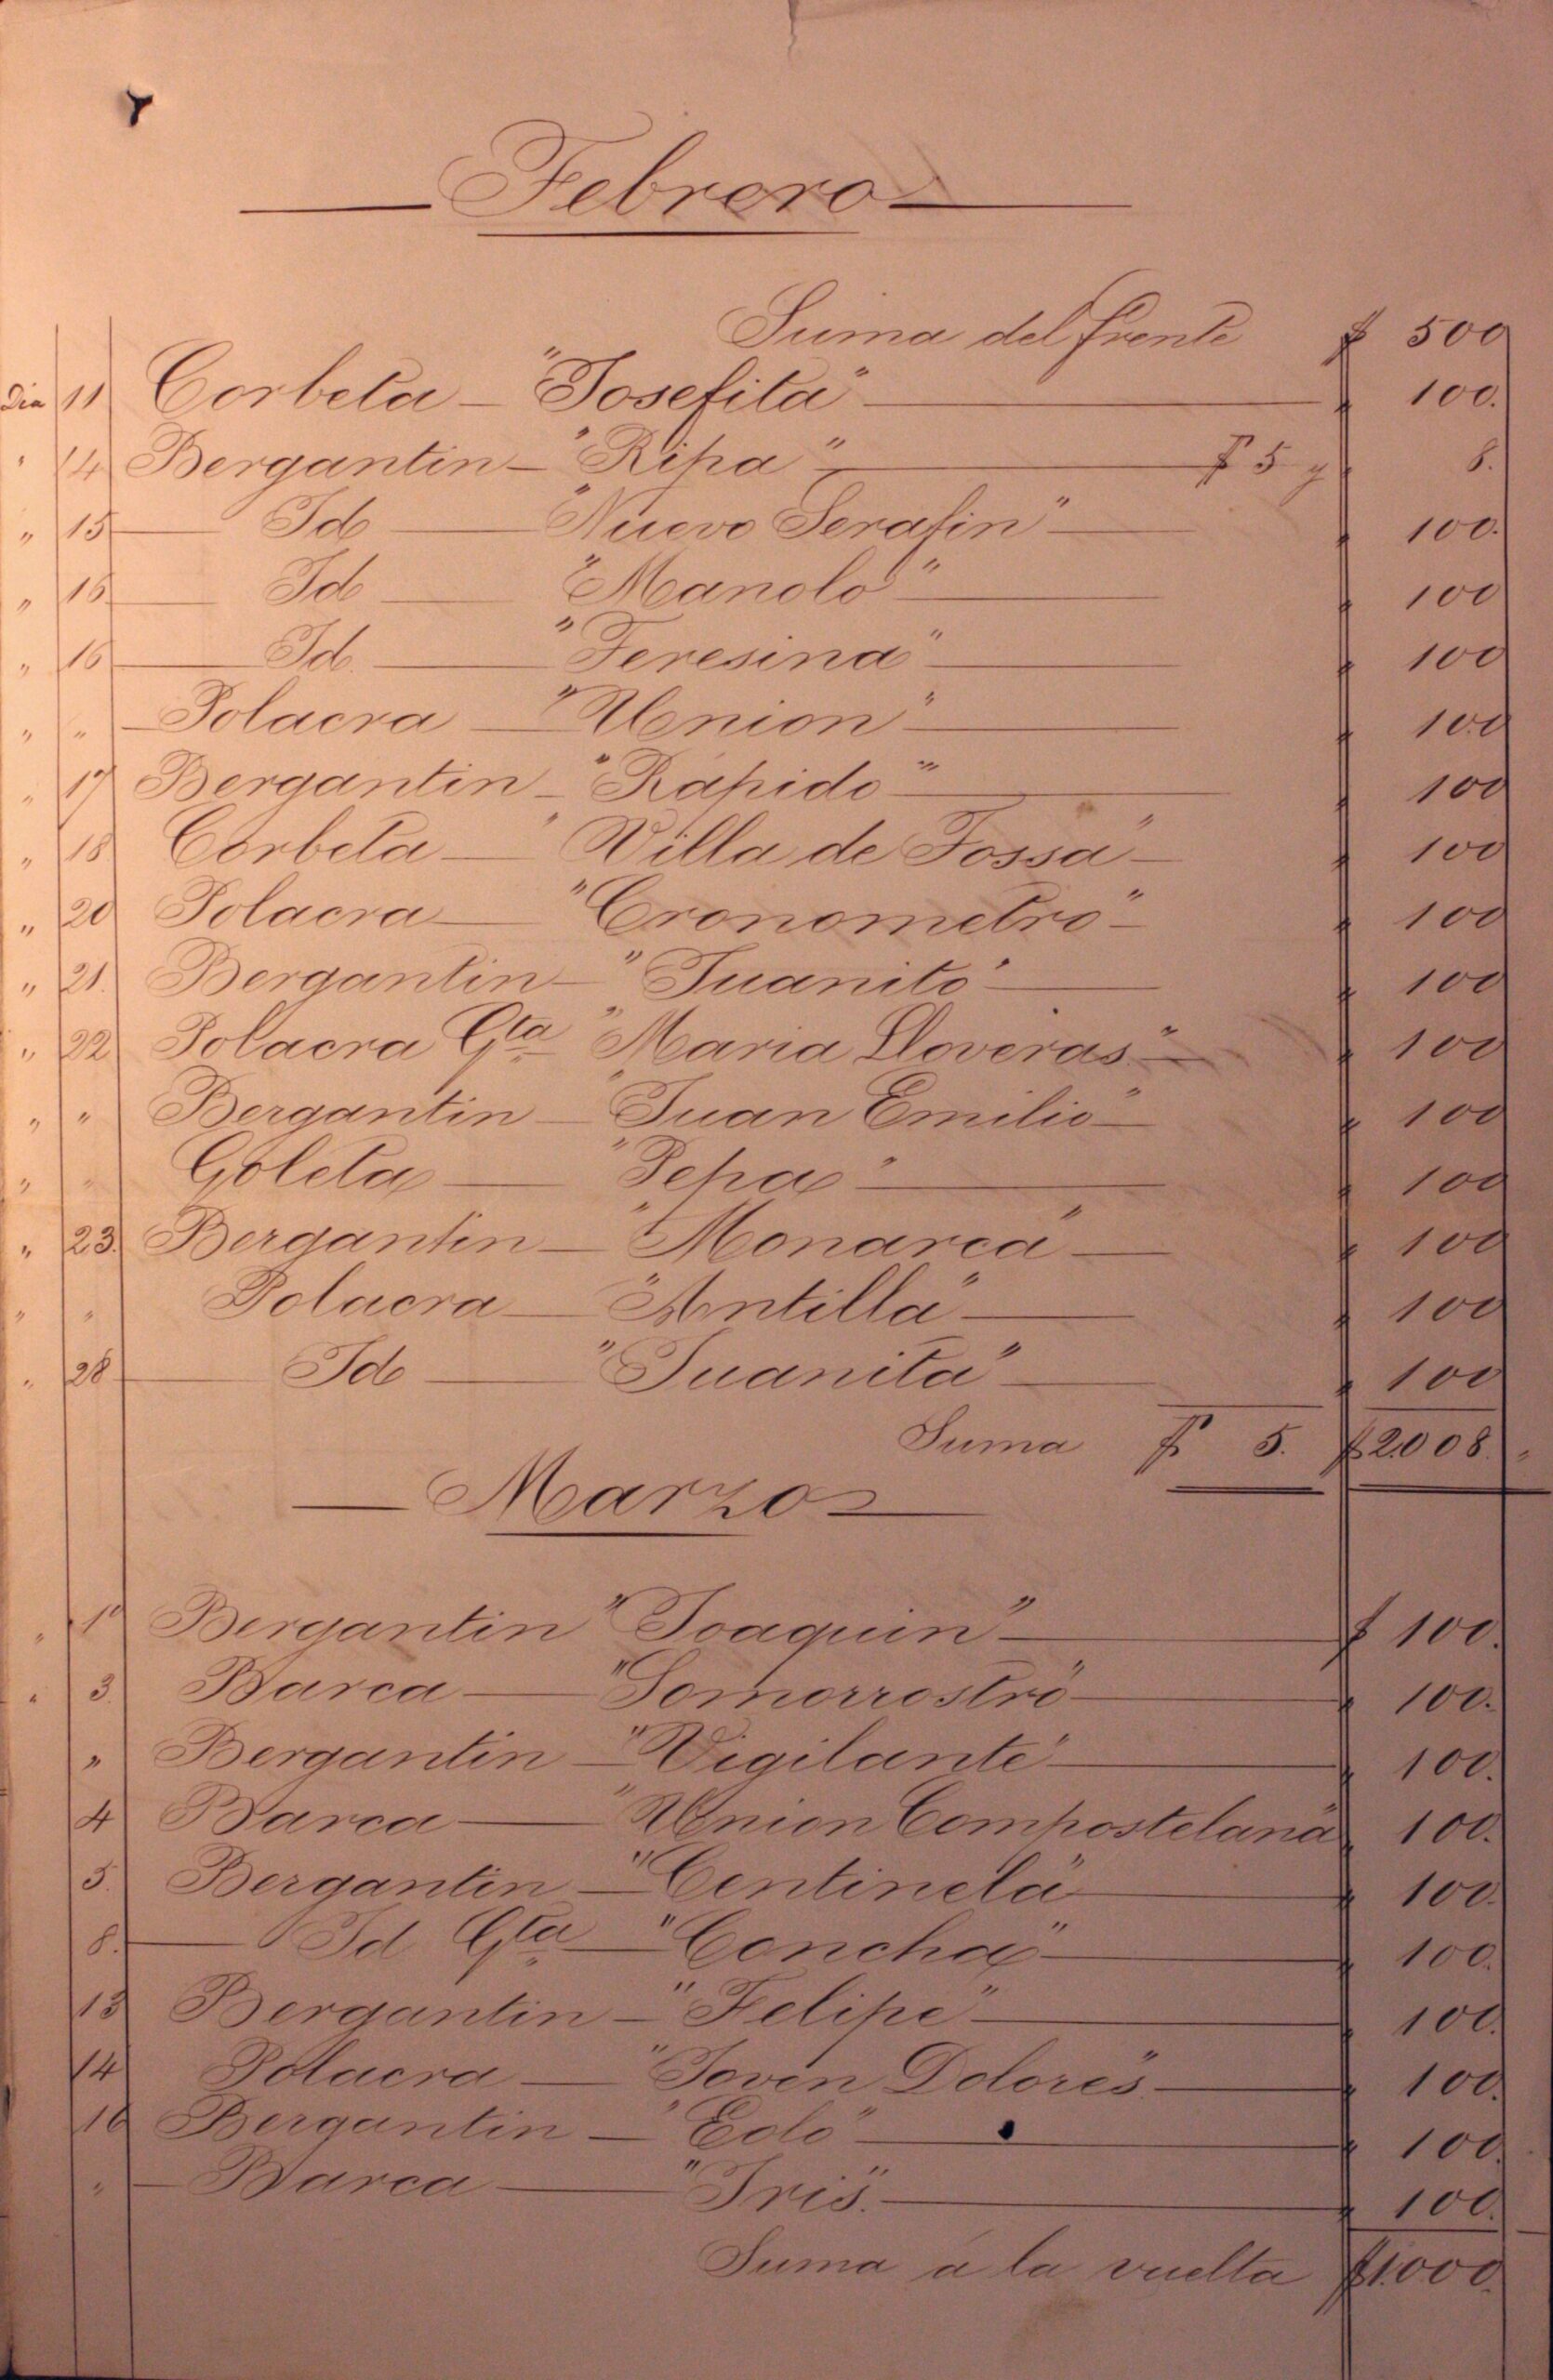 Febrero
Suma del frente $ 500
Dia 11 Corbeta - "Josefita" " 100.
" 14 Bergantin - "Ripa" - $ 5 y " 8.
" 15 - Id - "Nuevo Serafin" - " 100.
" 15 - Id - "Manolo" - " 100
" 16 - Id. - "Teresina" - " 100
" " - Polacra - "Union" - " 100
" 17 Bergantin - "Rápido" - " 100
" 18 Corbeta - "Villa de Tossa" - " 100
" 20 Polacra - "Cronometro" - " 100
" 21. Bergantin - "Juanito" - " 100
" 22 Polacra Gta "Maria Lloveras." - " 100
" " Bergantin - "Juan Emilio" - " 100
" " Goleta - "Pepa" - " 100
" 23. Bergantin - "Monarca" - " 100
" " Polacra - "Antilla" - " 100
" 28 - Id - "Juanita" - " 100
Suma $ 5. $ 2.008.
- Marzo -
" 1º Bergantin "Joaquin" - $ 100.
" 3. Barca - "Somorrostro" - " 100.
" Bergantin - "Vigilante" - " 100.
4 Barca - "Union Compostelana" " 100.
5. Bergantin - "Centinela" - " 100.
8. - Id Gta - "Concha" - " 100.
13 Bergantin - "Felipe" - " 100.
14 Polacra - "Joven Dolores" - " 100.
16 Bergantin - "Eolo" - " 100.
" - Barca - "Iris". - " 100.
Suma á la vuelta $ 1.000.